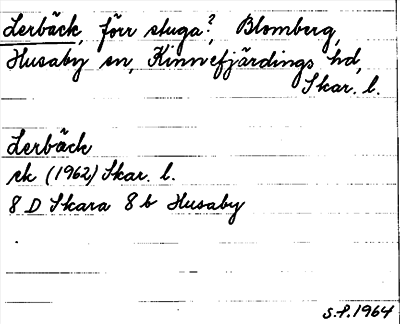 Lerbäck, förr stuga?, Blomberg,
Husaby sn, Kinnefjärdings hd,
Skar. l.
Lerbäck
ek (1962) Skar. l.
8 D Skara 8 b Husaby
S.P. 1964